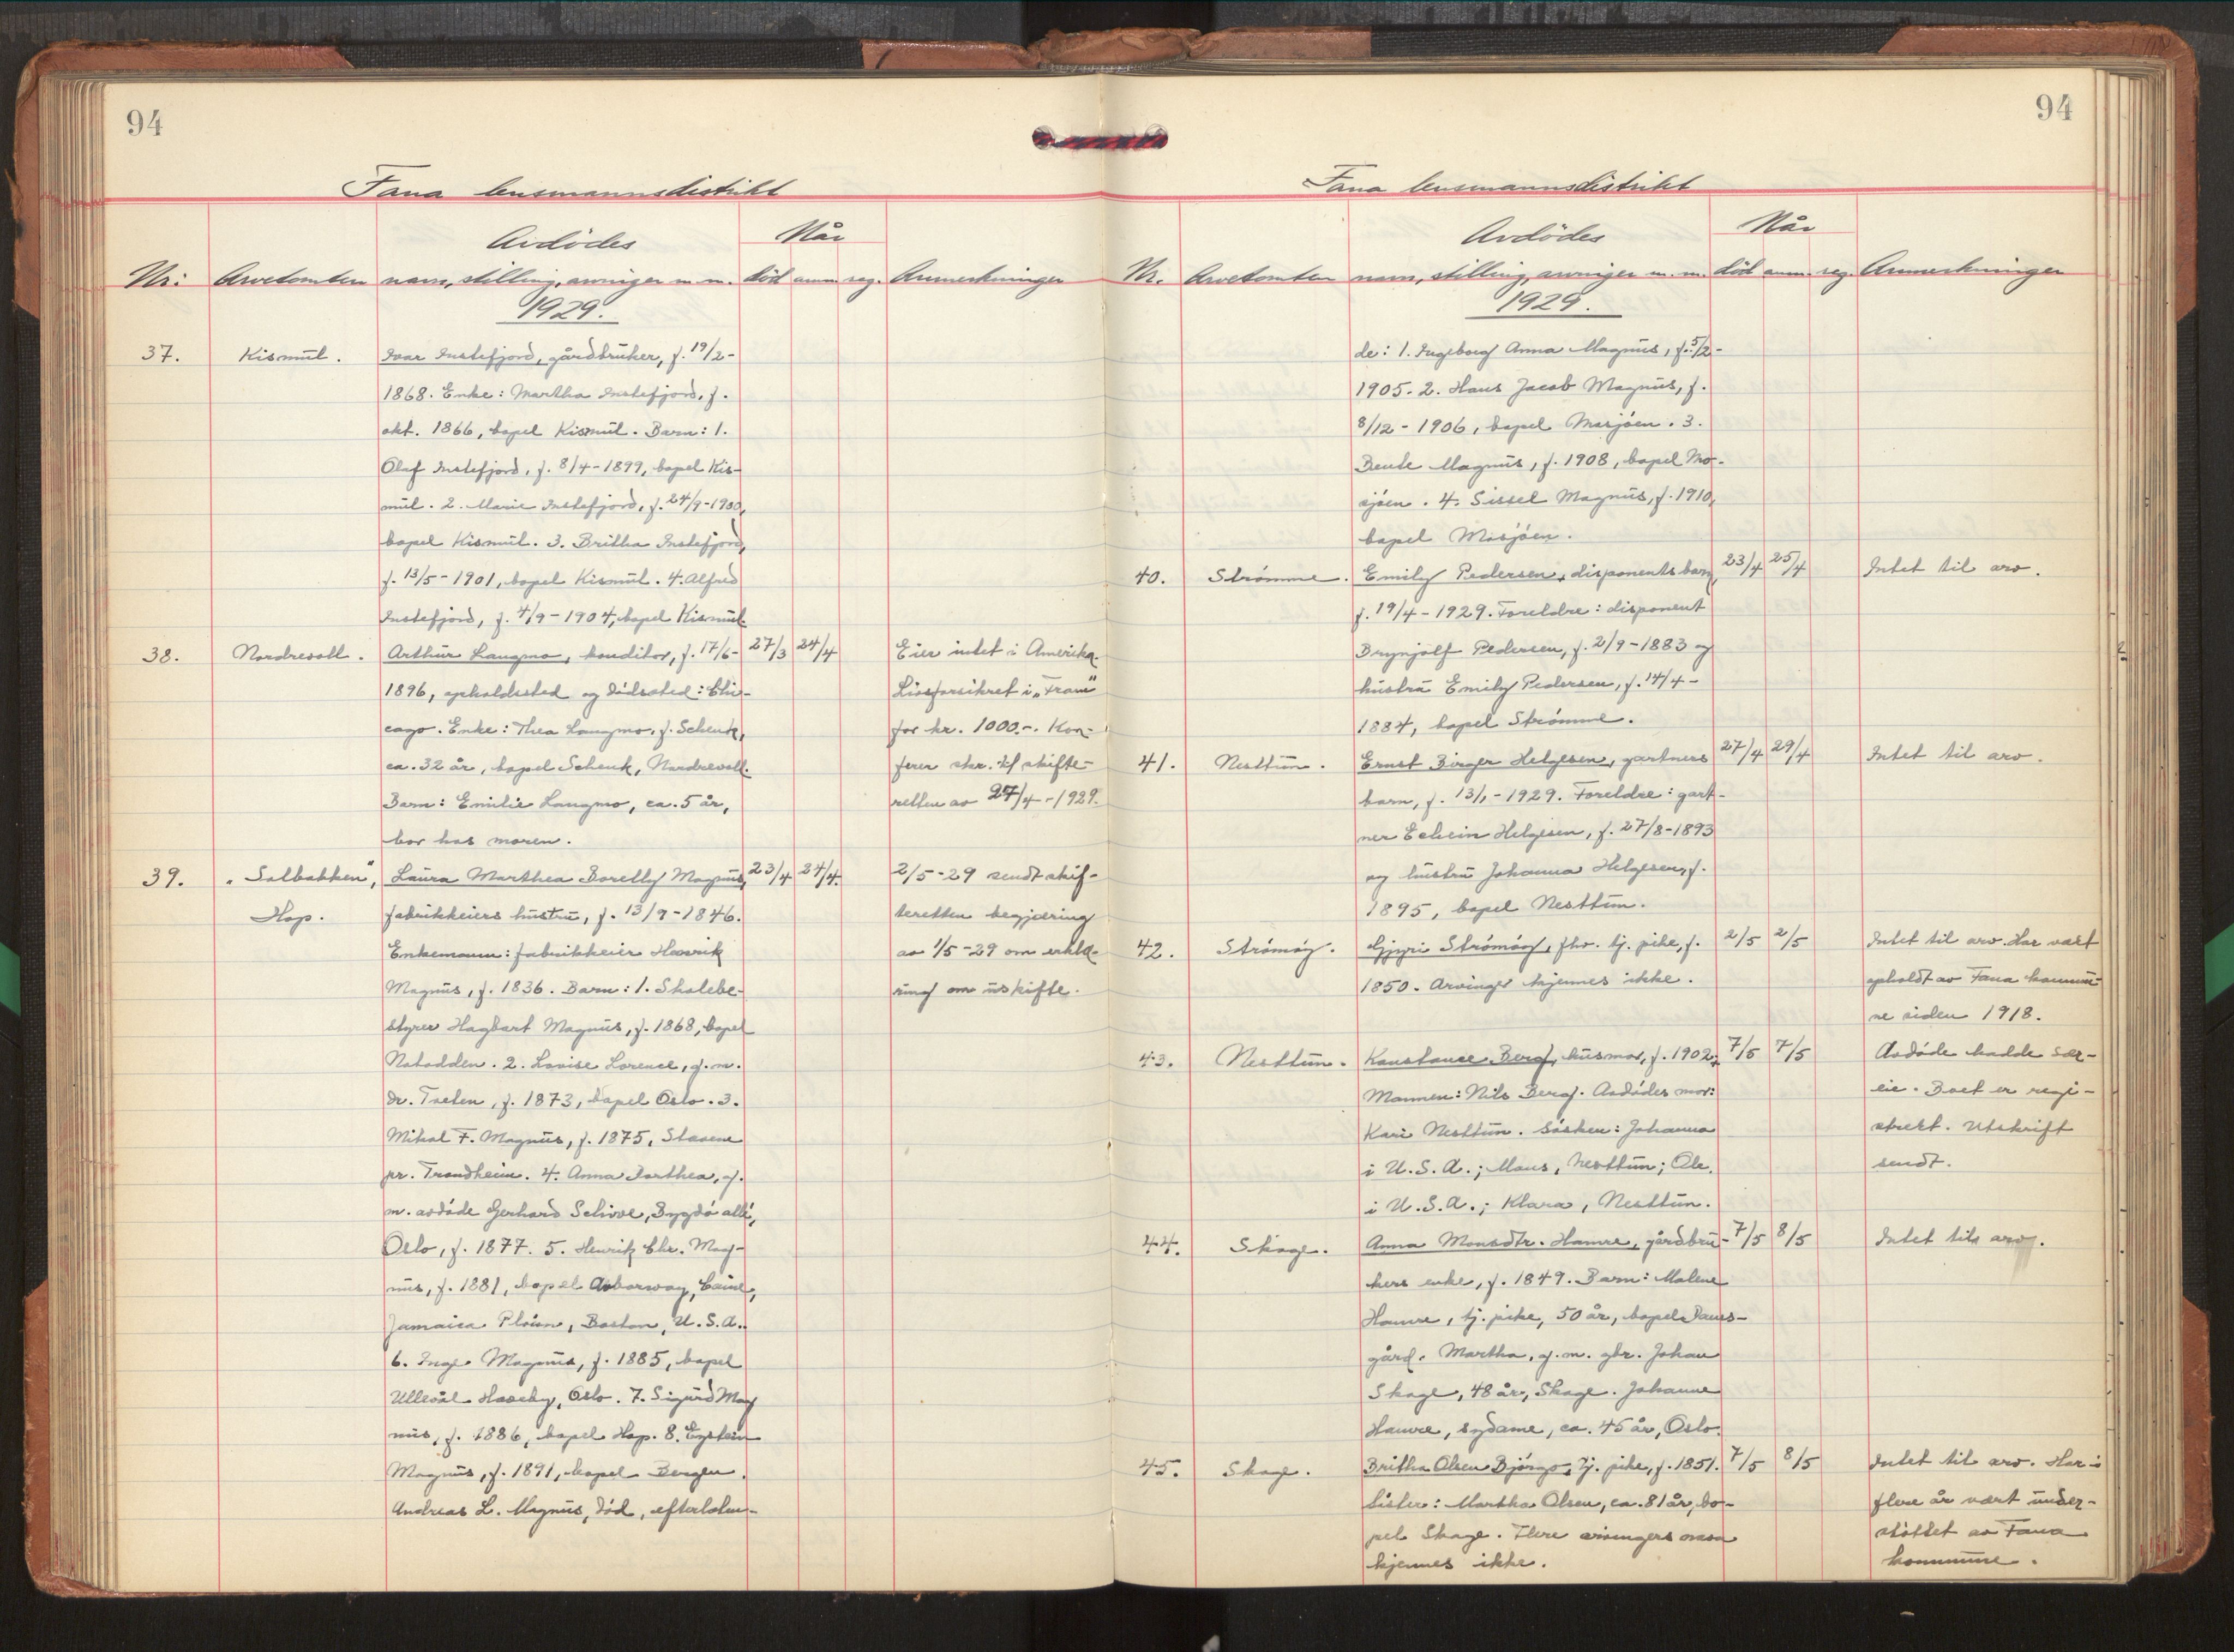 94
Fana lensmannsdistrikt
Nr: Arvetomten
Avdödes
navn, stilling, arvinger m. m.
Når
död anm. reg. Anmerkninger
1929.
37. Kismul. Ivar Instefjord, gårdbruker, f. 19/2-
1868. Enke: Martha Instefjord, f.
okt. 1866, bopel Kismul. Barn: 1.
Olaf Instefjord, f. 8/4-1899, bopel Kis-
mul. 2. Marie Instefjord, f. 24/9-1900,
bopel Kismul. 3. Britha Instefjord,
f. 13/5-1901, bopel Kismul. 4. Alfred
Instefjord, f. 4/9-1904, bopel Kismul.
38. Nordrevoll. Arthur Langmo, konditor, f. 17/6- 27/3 24/4 Eier intet i Amerika.
1896, opholdssted og dödssted: Chi- Livsforsikret i „Fram"
cago. Enke: Thea Langmo, f. Schenk, for kr. 1000.-. Kon-
ca. 32 år, bopel Schenk, Nordrevoll. ferer skr. t/ skifte-
Barn: Emilie Langmo, ca. 5 år, retten av 27/4-1929.
bor hos moren.
39. „Solbakken", Laura Marthea Borelly Magnus, 23/4 24/4. 2/5-29 sendt skif-
Hop. fabrikkeiers hustru, f. 13/9-1846. teretten begjæring
Enkemann: fabrikkeier Henrik av 1/5-29 om erklæ-
Magnus, f. 1836. Barn: 1. Skolebe- ring om uskifte.
styrer Hagbart Magnus, f. 1868, bopel
Notodden. 2. Lovise Lorence, g. m.
dr. Tveten, f. 1873, bopel Oslo. 3.
Mikal F. Magnus, f. 1875, Stavne
pr. Trondheim. 4. Anna Dorthea, g.
m. avdöde Gerhard Schive, Bygdö allé,
Oslo, f. 1877. 5. Henrik Chr. Mag-
nus, f. 1881, bopel Arborway,
Jamaica Plain, Boston, U. S. A.
6. Inge Magnus, f. 1885, bopel
Ullevål Haveby, Oslo. 7. Sigurd Mag
nus, f. 1886, bopel Hop. 8. Eystein
Magnus, f. 1891, bopel Bergen.
Andreas L. Magnus, död, efterlaten-
94
Fana lensmannsdistrikt
Nr. Arvetomten
Avdödes
navn, stilling, arvinger m. m.
Når
död anm. reg. Anmerkninger
1929.
de: 1. Ingeborg Anna Magnus, f. 5/2-
1905. 2. Hans Jacob Magnus, f.
8/12-1906, bopel Mosjöen. 3.
Bente Magnus, f. 1908, bopel Mo-
sjöen. 4. Sissel Magnus, f. 1910,
bopel Mosjöen.
40. Strömme. Emily Pedersen, disponents barn, 23/4 25/4 Intet til arv.
f. 19/4-1929. Foreldre: disponent
Brynjolf Pedersen, f. 2/9-1883 og
hustru Emily Pedersen, f. 14/4-
1884, bopel Strömme.
41. Nesttun. Ernst Birger Helgesen, gartners 27/4 29/4 Intet til arv.
barn, f. 13/1-1929. Foreldre: gart-
ner Edvin Helgesen, f. 27/8-1893
og hustru Johanna Helgesen, f.
1895, bopel Nesttun.
42. Strömöy. Gjyri Strömöy, fhv. tj. pike, f. 2/5 2/5 Intet til arv. Har vært
1850. Arvinger kjennes ikke. opholdt av Fana kommu-
ne siden 1918.
43. Nesttun. Konstance Berg, husmor, f. 1902. 7/5 7/5 Avdöde hadde sær-
Mannen: Nils Berg. Avdödes mor: eie. Boet er regi-
Kari Nesttun. Sösken: Johanna strert. Utskrift
i U. S. A.; Mons, Nesttun; Ole, sendt.
i U. S. A.; Klara, Nesttun.
44. Skage. Anna Monsdtr. Hamre, gårdbru- 7/5 8/5 Intet til arv.
kers enke, f. 1849. Barn: Malene
Hamre, tj. pike, 50 år, bopel Paus-
gård. Martha, g. m. gbr. Johan
Skage, 48 år, Skage. Johanne
Hamre, sydame, ca. 45 år, Oslo.
45. Skage. Britha Olsen Björgo, tj. pike, f. 1851. 7/5 8/5 Intet til arv. Har i
Sister: Martha Olsen, ca. 81 år, bo- flere år vært under-
pel Skage. Flere arvingers navn stöttet av Fana
kjennes ikke. kommune.